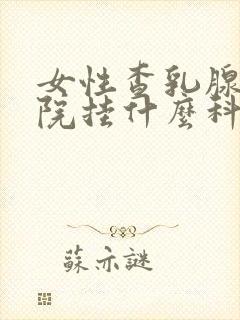 女性查乳腺
院挂什麼科
蘇亦謎